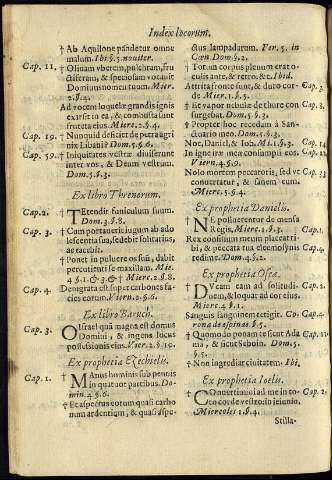 Index locorum.
† Ab Aquilone pandetur omne
malum. Ibi §.5. nouiter.
Cap. 11. † Oliuam vberem, pulchram, fru
ctiferam, & speciosam vocauit
Dominus nomen tuum. Mier.
2. §.4.
Ad vocem loquelæ grandis ignis
exarsit in ea, & combusta sunt
fruteta eius. Mierc. 2. §.4.
Cap. 19. † Nunquid deficiet de petra agri
nix Libani? Dom. 5. §.6.
Cap. 59. † Iniquitates vestræ diuiserunt
inter vos, & Deum vestrum.
Dom. 5. §.3.
Ex libro Threnorum.
Cap. 2. † Tetendit funiculum suum.
Dom. 2. §.4.
Cap. 3. † Cum portauerit iugum ab ado
lescentia sua, sedebit solitarius,
ac tacebit.
† Ponet in puluere os suū, dabit
percutienti se maxillam. Mie.
4. §.1. & 3. & † Mierc. 2. §.8.
Cap. 4. Denigrata est super carbones fa
cies eorum. Viern. 2. §.6.
Ex libro Baruch.
Cap. 3. O Israel quā magna est domus
Domini, & ingens locus
possessionis eius. Vier. 2. §.10.
Ex prophetia Ezechielis.
Cap. 1. † Manus hominis sub pennis
in quatuor partibus. Do-
min. 4. §.6.
† Et aspectus eorum quasi carbo
num ardentium, & quasi aspe-
ctus lampadarum. Fer. 5. in
Cœn. Dom. §.2.
† Totum corpus plenum erat o-
culis ante, & retro, &c. Ibid.
Attrita fronte sunt, & duro cor-
de. Mier. 1. §.3.
† Et vapor nebulæ de thure con
surgebat. Dom. 5. §.3.
† Propter hoc recedam à San-
ctuario meo. Dom. 5. §.3.
Noe, Daniel, & Iob. Mi. 1. §.3.
In igne iræ meæ consumpsi eos.
Viern. 4. §.9.
Nolo mortem peccatoris, sed vt
conuertatur, & suum eum.
Mierc. 2. §.4.
Ex prophetia Danielis.
† Ne pollueretur de mensa
Regis. Mierc. 1. §.3.
Rex consilium meum placeat ti-
bi, & peccata tua eleemosynis
redime. Dom. 4. §.2.
Ex prophetia Oseæ.
Ducam eam ad solitudi-
nem, & loquar ad cor eius.
Mierc. 1. §.4.
Sanguis sanguinem tetigit. Co-
rona de espinas §.5.
† Quomodo ponam te sicut Ada
ma, & sicut Seboin. Dom. 5.
§.3.
† Non ingrediar ciuitatem. Ibi.
Ex prophetia Ioelis.
† Conuertimini ad me in to-
to corde vestro: in ieiunio.
Miercoles 1. §.4.
Stilla-